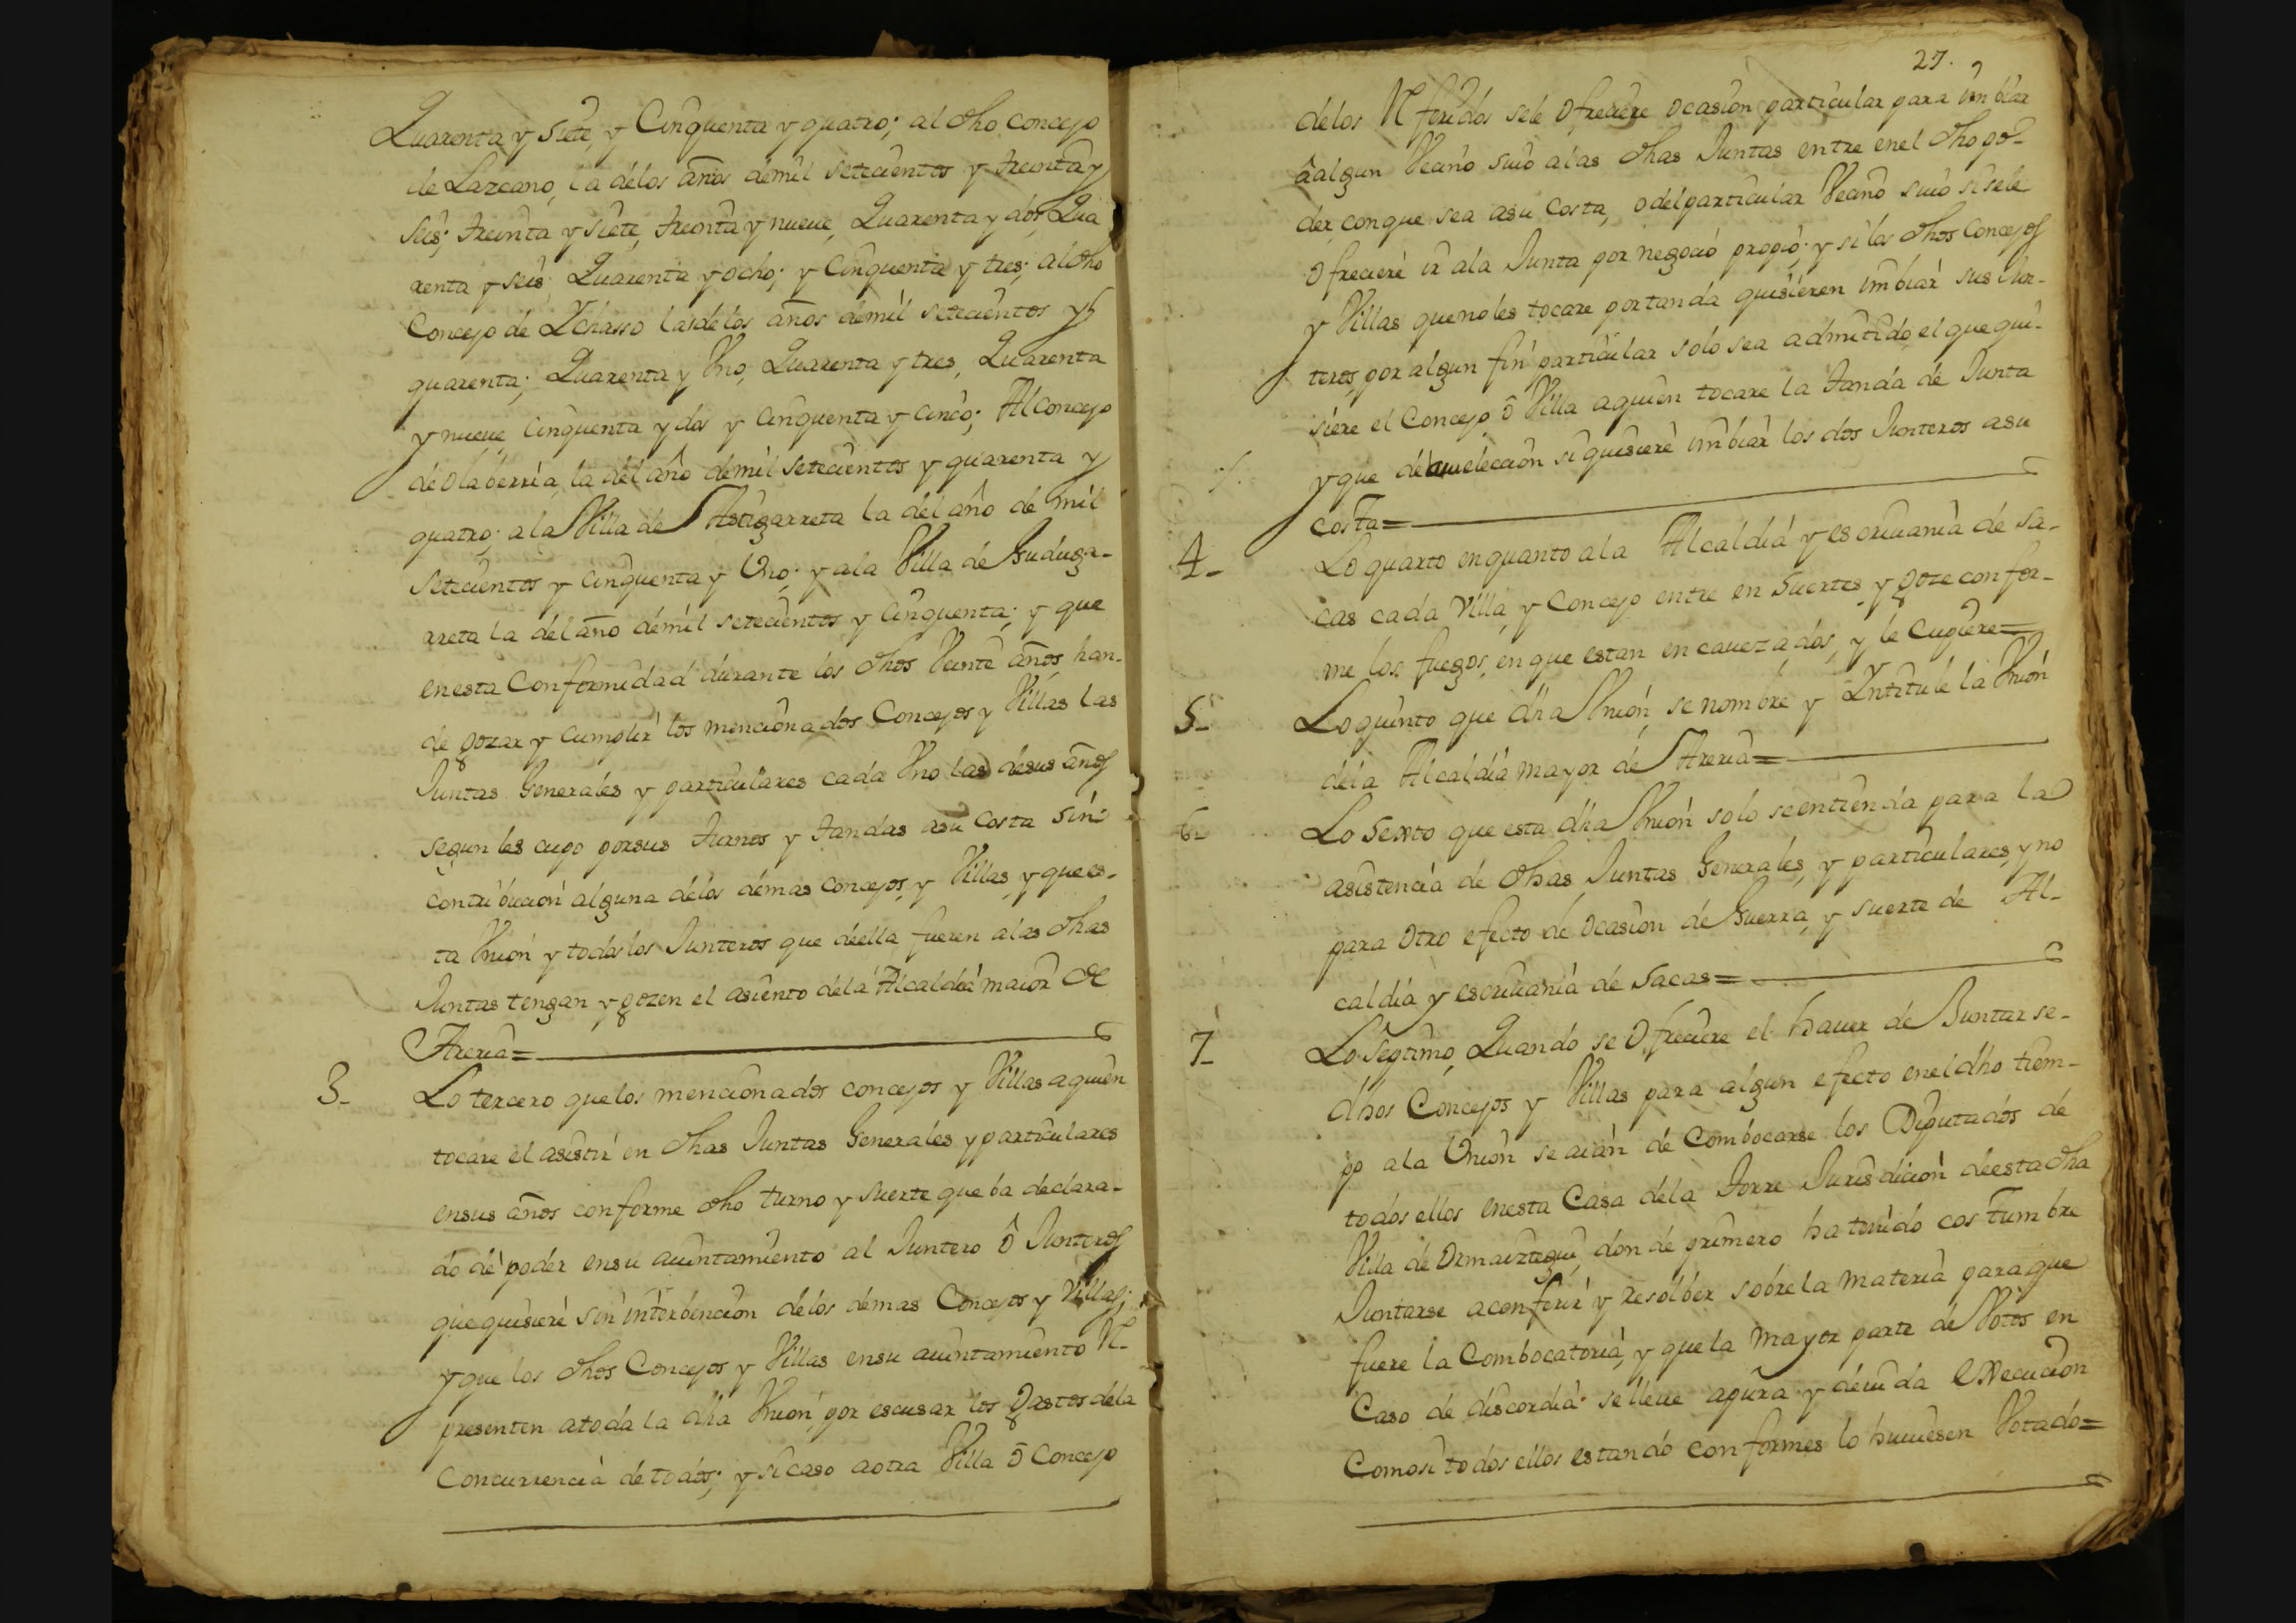 Quarenta y Siete, y Cinquenta y quatro; al dho concejo
de Lazcano, la delos años demil setecientos y treinta y
Seis; treinta y siete, treinta y nueue, Quarenta y dos, Qua
renta y seis, Quarenta y ocho; y Cinquenta y tres; al dho
Concejo de Ychasso lasdelos años demil setecientos y
quarenta; Quarenta y Vno, Quarenta y tres, Quarenta
y nueue, Cinquenta y dos y Cinquenta y cinco; Al concejo
de olaberria, la del año demil setecientos y quarenta y
quatro; ala Villa de Astigarreta la del año de mil
setecientos y cinquenta y Uno; y ala Villa de Guduga-
rreta la del año demil setecientos y Cinquenta; y que
enesta Conformidad durante los dhos Veinte años han-
de gozar y cumplir los mencionados Concejos y Villas las
Juntas Generales y particulares cada Vno las desus años
segun les cupo porsus turnos y tandas asu costa sin
contribucion alguna delos demas concejos, y Villas, y que es-
ta Vnion y todos los Junteros que deella fueren alas dhas
Juntas tengan y gozen el asiento dela Alcaldia maior de
Areria=
3_ Lo tercero quelos mencionados concejos y Villas aquien
tocare el asistir en dhas Juntas Generales y particulares
ensus años conforme dho turno y suerte que ba declara-
do de poder ensu auintamiento al Juntero ô Junteros
que quisiere sin interbencion delos demas Concejos y Villas;
y que los dhos Concejos y Villas ensu auintamiento Re-
presenten atoda la dha Vnion, por escusar los gastos dela
Concurrencia de todos; y si caso aotra Villa ô Concejo
27.
delos Referidos sele ofreciere ocasion particular para imbiar
â algun Vecino suio alas dhas Juntas entre enel dho po-
der, conque sea asu costa, o del particular Vecino suio si sele
ofreciere ir ala Junta por negocio propio; y si los dhos Concejos
y Villas que no les tocare por tanda quisieren imbiar sus Jun-
teros, por algun fin particular solo sea admitido, el que qui-
siere el Concejo ô Villa aquien tocare la tanda de Junta
y que de su eleccion si quisiere imbiar los dos Junteros asu
costa=
4_ Lo quarto enquanto ala Alcaldia y escriuania de sa-
cas cada Villa, y Concejo entre en Suertes, y goze confor-
me los fuegos, en que estan encauezados, y le Cupiere=
5_ Lo quinto que dha Vnion se nombre y Yntitule la Vnion
dela Alcaldia mayor de Areria=
6_ Lo Sexto que esta dha Vnion solo se entienda para la
asistencia de dhas Juntas Generales, y particulares, y no
para otro efecto de ocasion de Guerra, y suerte de Al-
caldia y escriuania de Sacas=
7_ Lo Septimo, Quando se ofreciere el hauer de Juntarse-
dhos Concejos y Villas para algun efecto enel dho tiem-
po ala Union se aian de Combocarse los Diputados de
todos ellos enesta Casa dela Torre Jurisdicion deesta dha
Villa de Ormaiztegui, donde primero ha tenido costumbre
Juntarse aconferir y resolber sobre la materia para que
fuere la Combocatoria, y que la mayor parte de Votos en
Caso de discordia se lleue apura y deuida execucion
Como si todos ellos estando conformes lo huuiesen Votado=